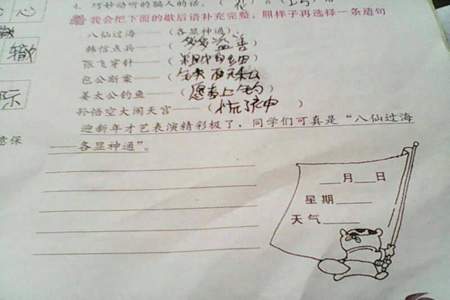 4. 巧妙动听的骗人的话。
我会把下面的歇后语补充完整，照样子再选择一条造句
心
八仙过海 —— (各显神通)
辙
韩信点兵—— (多多益善)
张飞穿针—— (粗中有细)
包公断案—— (铁面无私)
际
姜太公钓鱼—— (愿者上钩)
孙悟空大闹天宫—— (慌了神)
迎新年才艺表演精彩极了，同学们可真是“八仙过海
——各显神通”。
意保
月 日
星期
天气